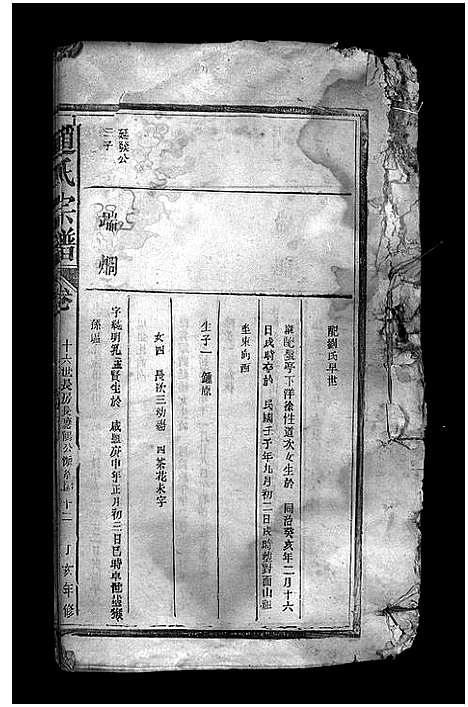 配劉氏早世
繼配盤亭下洋徐性道次女生於 同治癸亥年二月十六
日戌時卒於 民國壬子年九月初二日戌時葬對面山祖
坐東向西
生子一 鍾原
女四 長次三幼殤 四茶花未字
延發公
三子
端炯
字聰明孔孟賢生於 咸豐庚申年正月初三日巳時卒世盛嶽
趙氏宗譜
卷
十六世長房長應鶴公 十二
丁亥年修